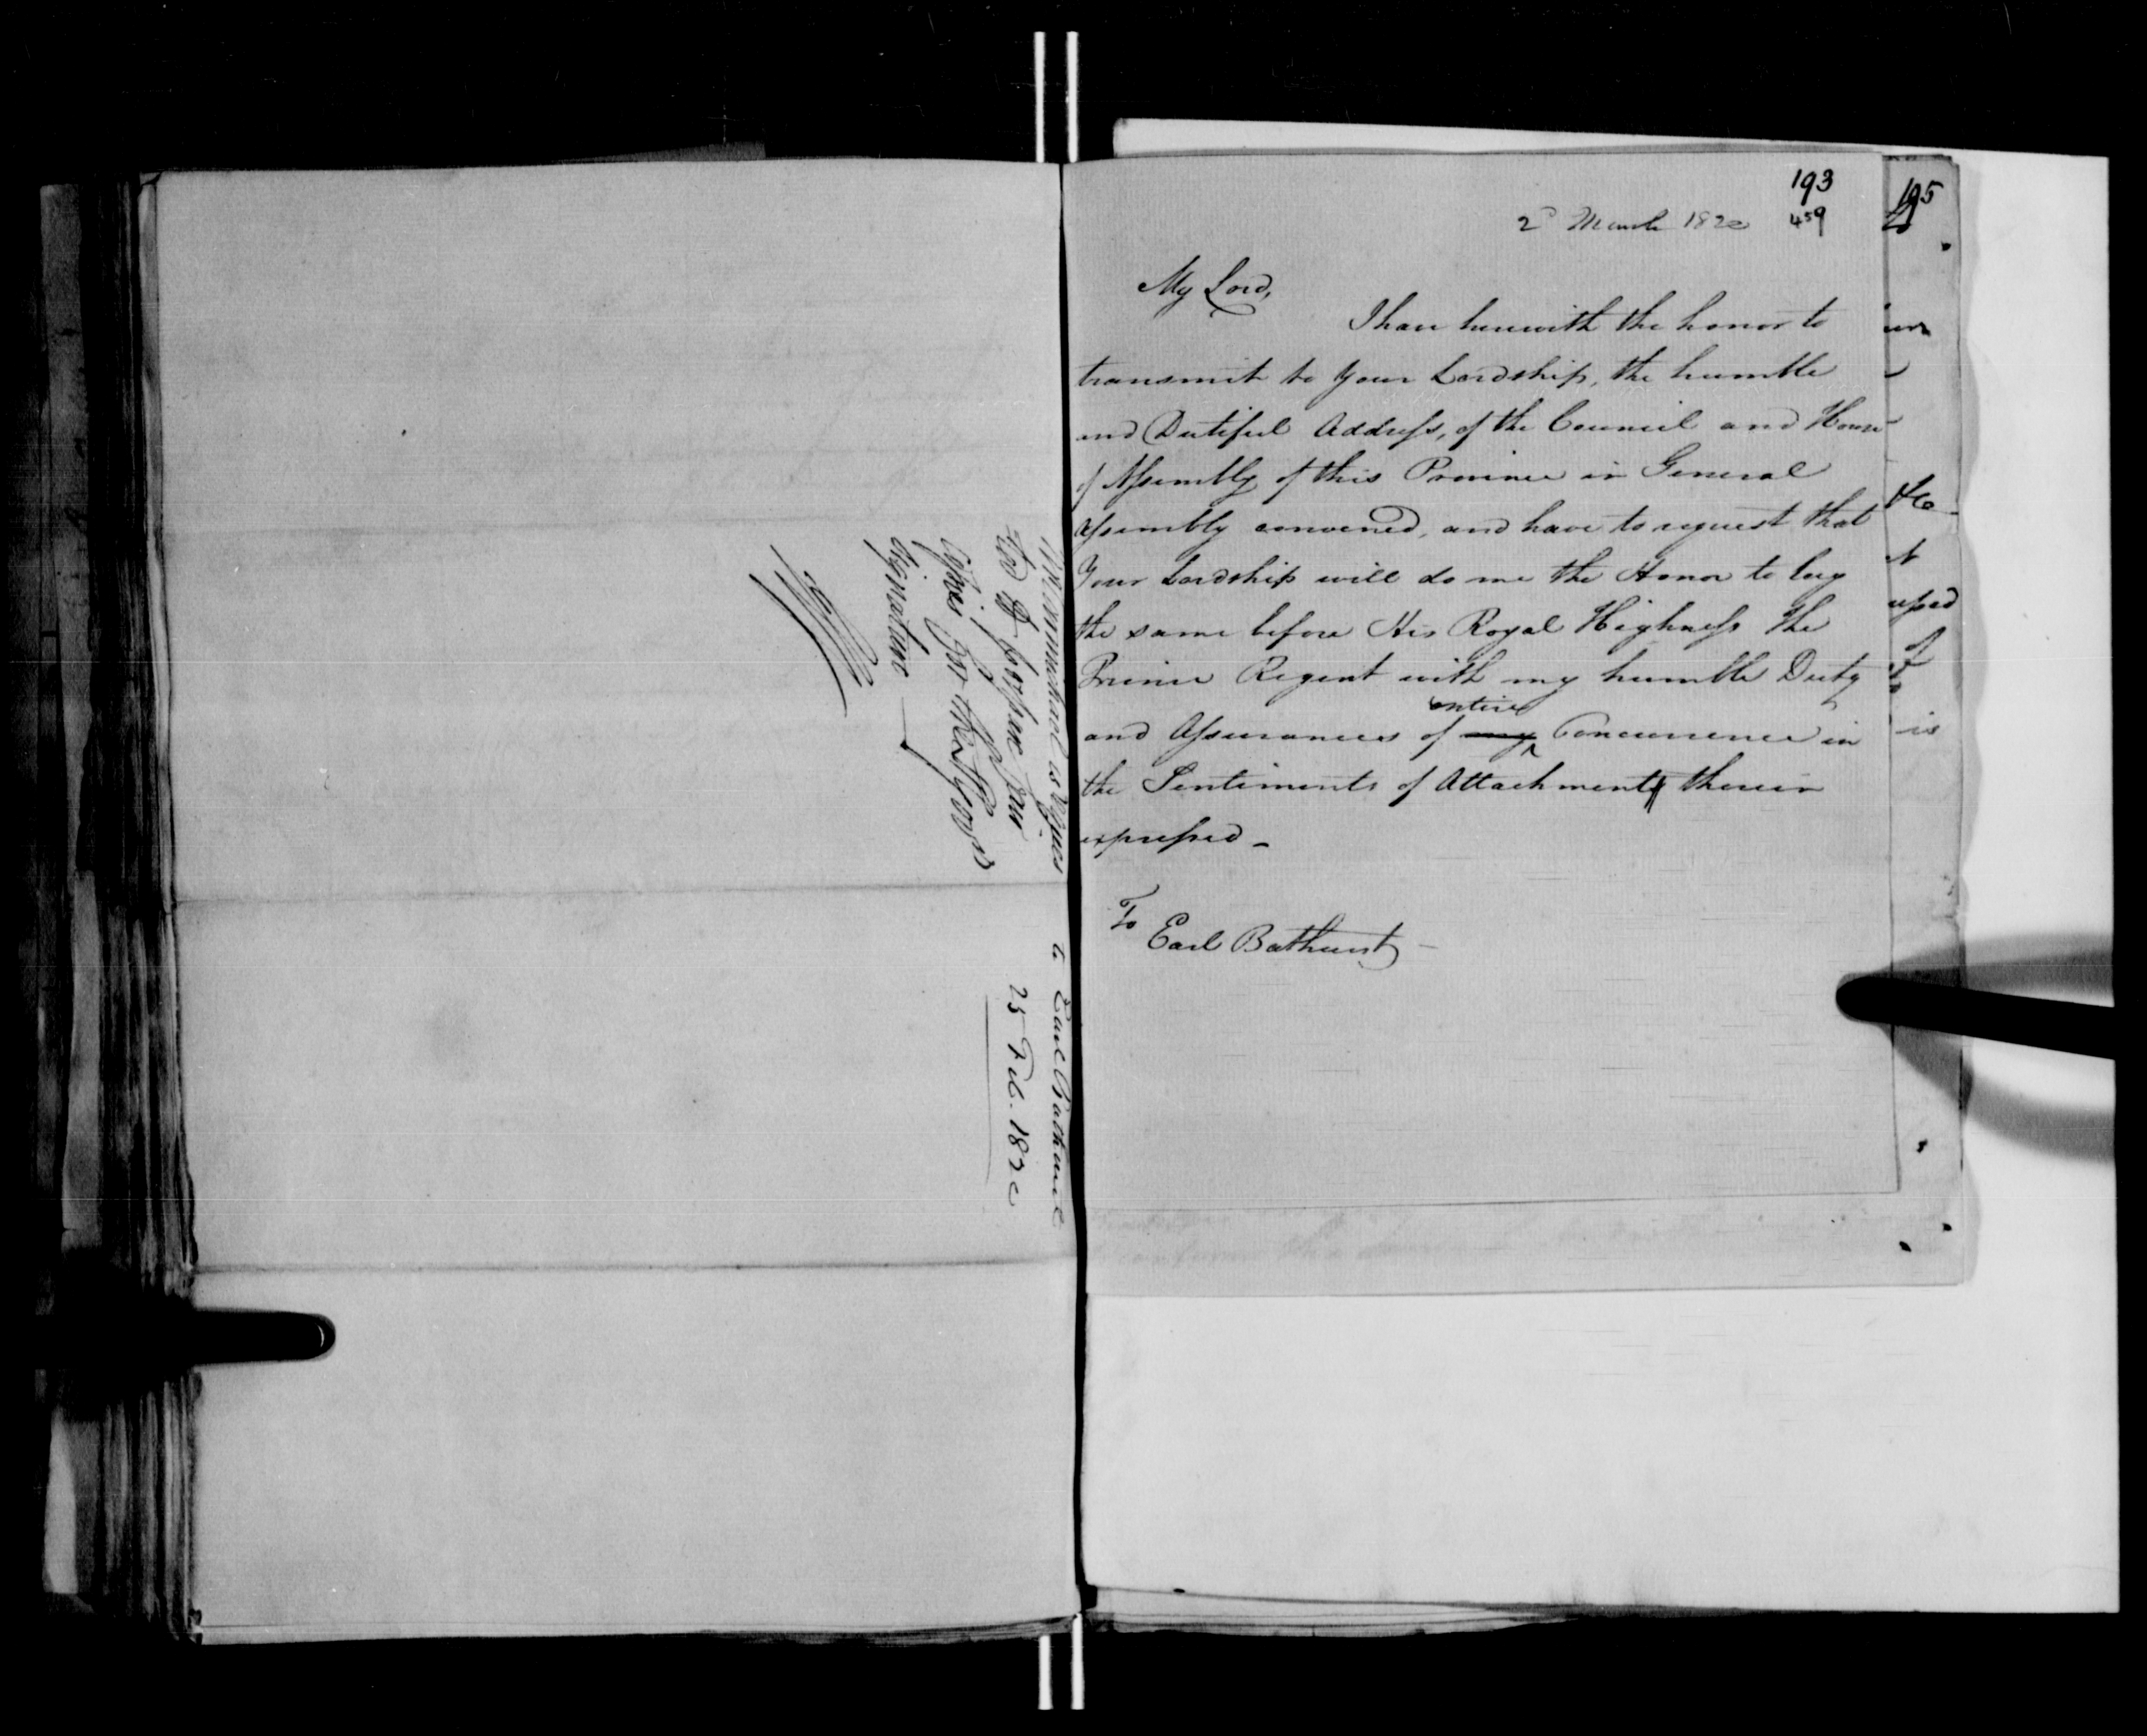 to Earl Bathurst
25 Feb. 1820
193
2d March 1820 459
My Lord,
I have herewith the honor to
transmit to your Lordship, the humble
and Dutiful Address, of the Council and House
of Assembly of this Province in General
Assembly convened, and have to request that
Your Lordship will do me the Honor to lay
the same before His Royal Highness The
Prince Regent with my humble Duty
entire
and Assurances of my Concurrence in
the Sentiments of Attachment therein
expressed -
To
Earl Bathurst -
195
is